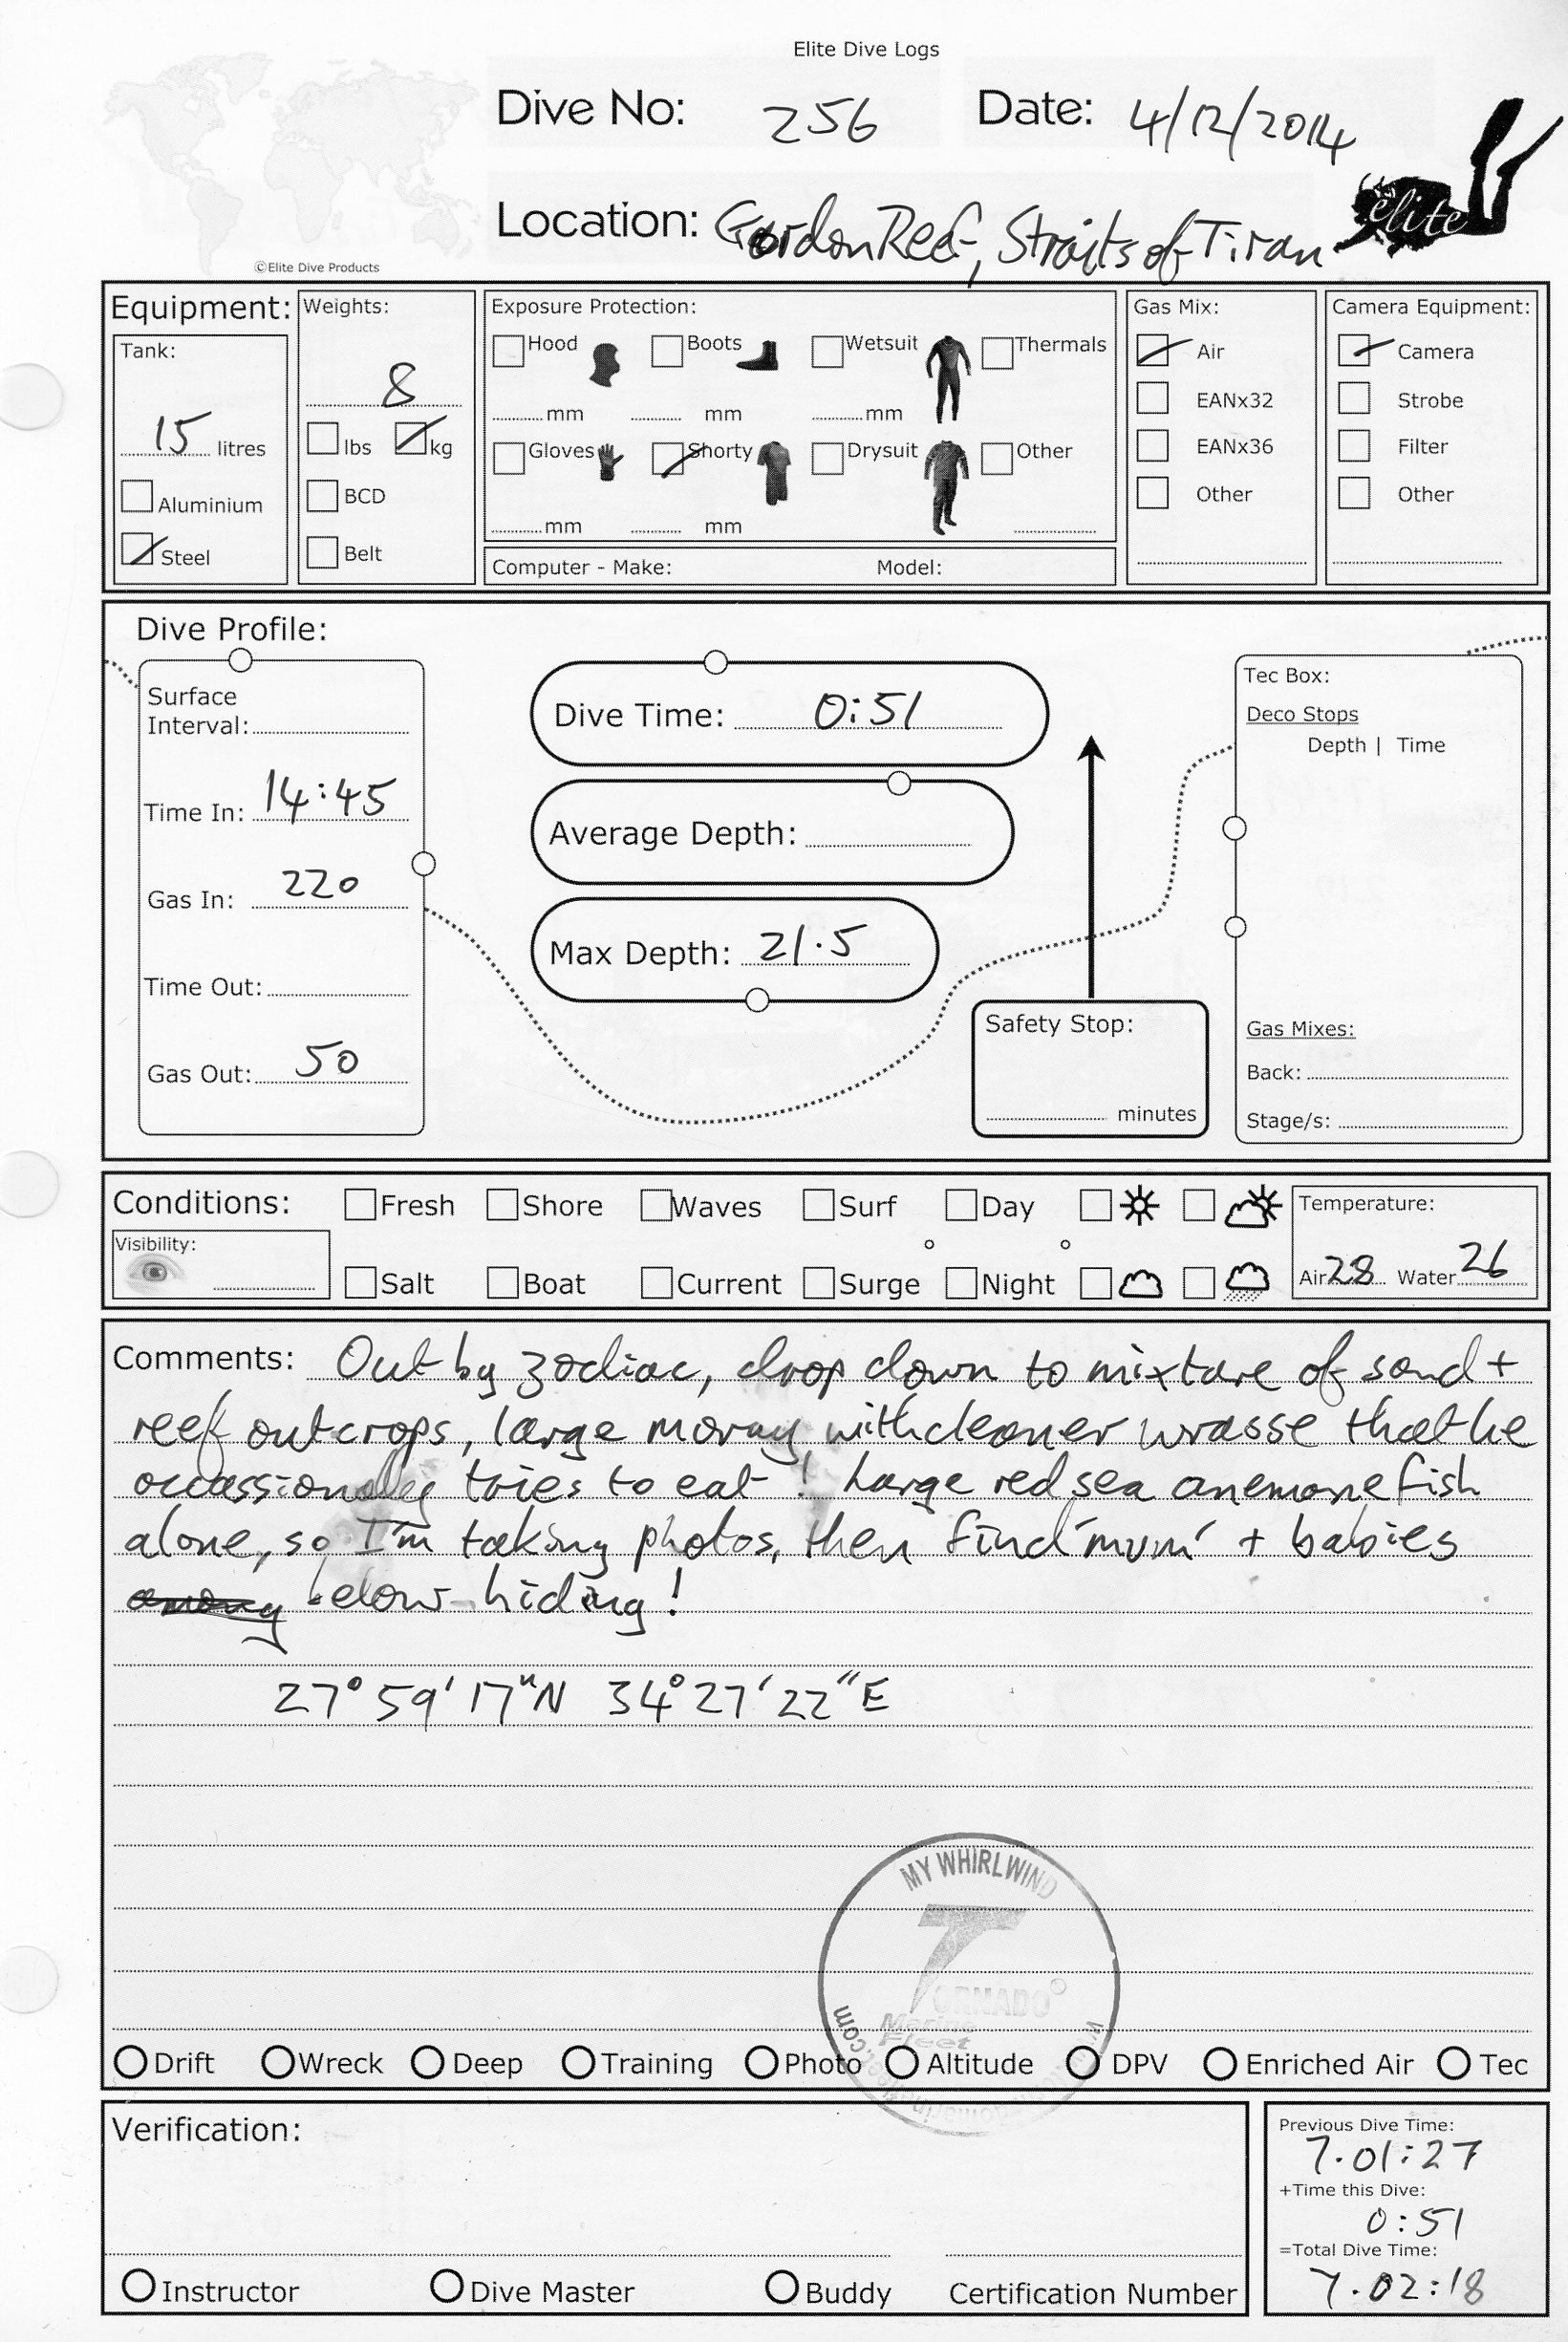 Elite Dive Logs
Dive No: 256 Date: 4/12/2014
Location: Gordon Reef, Straits of Tiran
elite
©Elite Dive Products
Equipment: Weights: Exposure Protection: Gas Mix: Camera Equipment:
Tank: Hood Boots Wetsuit Thermals Air Camera
8 mm mm mm EANx32 Strobe
15 litres lbs kg Gloves Shorty Drysuit Other EANx36 Filter
Aluminium BCD Other Other
mm mm
Steel Belt Computer - Make: Model:
Dive Profile:
Surface
Interval:
Time In: 14:45
Gas In: 220
Time Out:
Gas Out: 50
Dive Time: 0:51
Average Depth:
Max Depth: 21.5
Safety Stop:
minutes
Tec Box:
Deco Stops
Depth | Time
Gas Mixes:
Back:
Stage/s:
Conditions: Fresh Shore Waves Surf Day Temperature:
Visibility:
Salt Boat Current Surge Night Air 28 Water 26
Comments: Out by zodiac, drop down to mixture of sand +
reef outcrops, large moray with cleaner wrasse that he
occassionally tries to eat! Large red sea anemone fish
alone, so I'm taking photos, then find 'mum' + babies
among below hiding!
27° 59' 17"N 34° 27' 22"E
MY WHIRLWIND
TORNADO
Marine
Fleet
Drift Wreck Deep Training Photo Altitude DPV Enriched Air Tec
Verification:
Instructor Dive Master Buddy Certification Number
Previous Dive Time:
7.01:27
+Time this Dive:
0:51
=Total Dive Time:
7.02:18